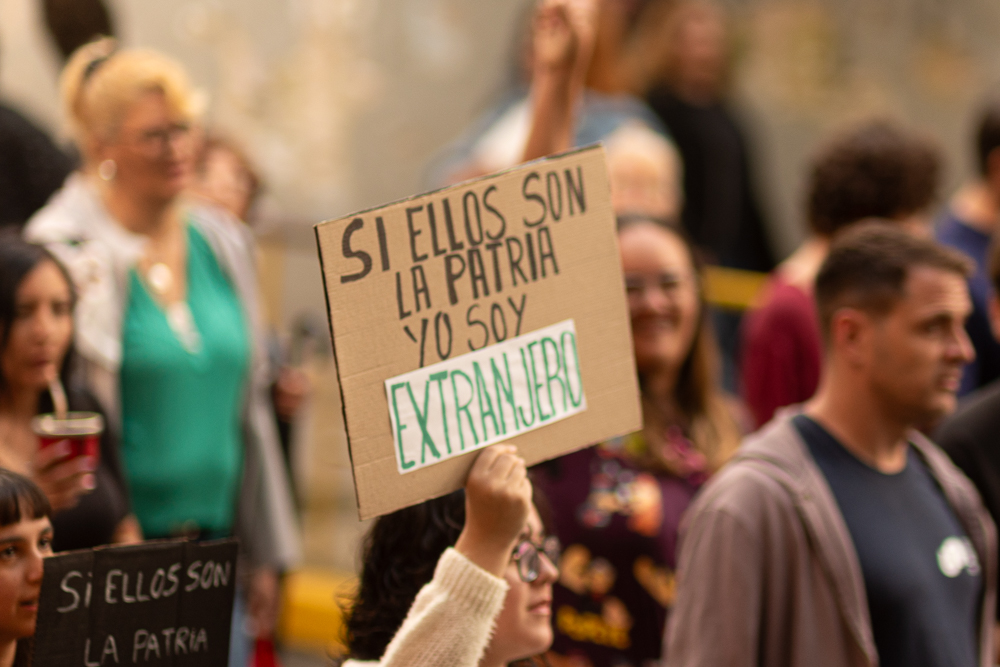 SI ELLOS SON
LA PATRIA
YO SOY
EXTRANJERO
Si ELLOS SON
LA PATRIA